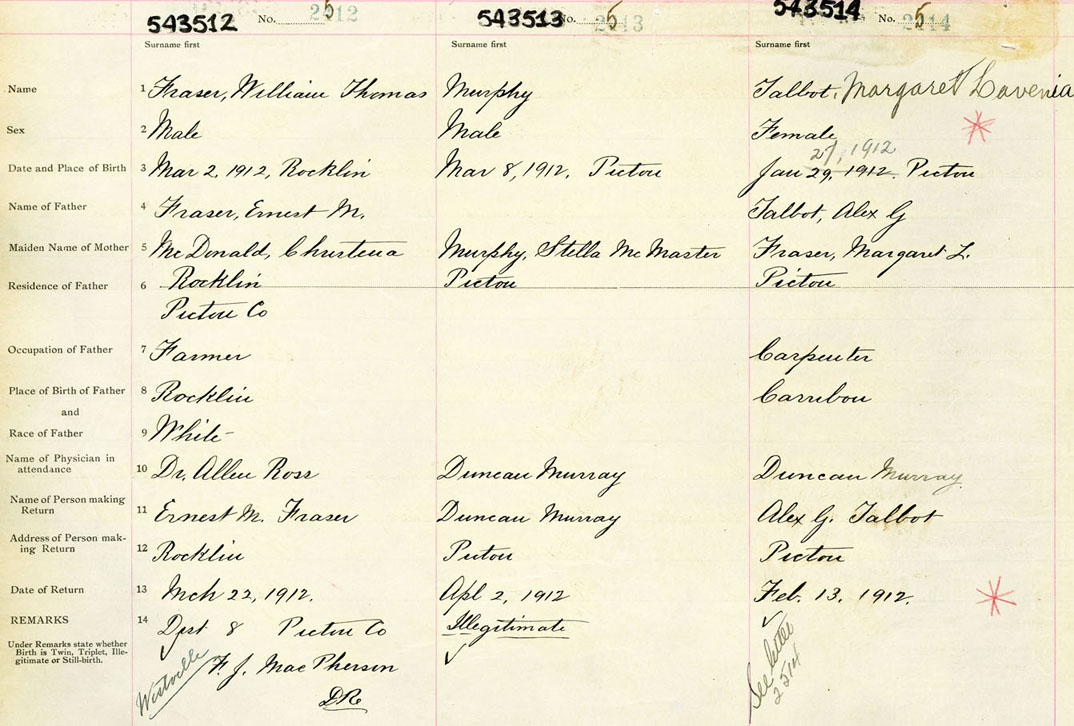 543512 No. 2512 543513 No. 2513 543514 No. 2514
Surname first Surname first Surname first
Name 1 Fraser, William Thomas Murphy Talbot, Margaret Lavenia
Sex 2 Male Male Female
27, 1912
Date and Place of Birth 3 Mar 2, 1912, Rocklin Mar 8, 1912. Pictou Jan 29, 1912. Pictou
Name of Father 4 Fraser, Ernest M. Talbot, Alex G
Maiden Name of Mother 5 McDonald, Christena Murphy, Stella McMaster Fraser, Margaret L.
Residence of Father 6 Rocklin Pictou Pictou
Pictou Co
Occupation of Father 7 Farmer Carpenter
Place of Birth of Father 8 Rocklin Carribou
and
Race of Father 9 White
Name of Physician in
attendance 10 Dr. Allen Ross Duncan Murray Duncan Murray
Name of Person making
Return 11 Ernest M. Fraser Duncan Murray Alex G. Talbot
Address of Person mak-
ing Return 12 Rocklin Pictou Pictou
Date of Return 13 Mch 22, 1912. Apl 2, 1912 Feb. 13, 1912.
REMARKS 14 Dist 8 Pictou Co Illegitimate
Under Remarks state whether
Birth is Twin, Triplet, Ille-
gitimate or Still-birth.
Westville F. J. MacPherson
DR
See letter
2514